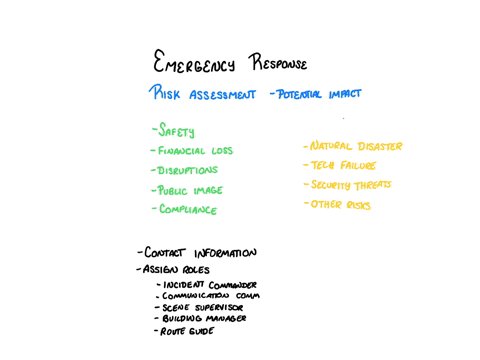 EMERGENCY RESPONSE
RISK ASSESSMENT - POTENTIAL IMPACT
- SAFETY
- FINANCIAL LOSS
- DISRUPTIONS
- PUBLIC IMAGE
- COMPLIANCE
- NATURAL DISASTER
- TECH FAILURE
- SECURITY THREATS
- OTHER RISKS
- CONTACT INFORMATION
- ASSIGN ROLES
- INCIDENT COMMANDER
- COMMUNICATION COMM
- SCENE SUPERVISOR
- BUILDING MANAGER
- ROUTE GUIDE